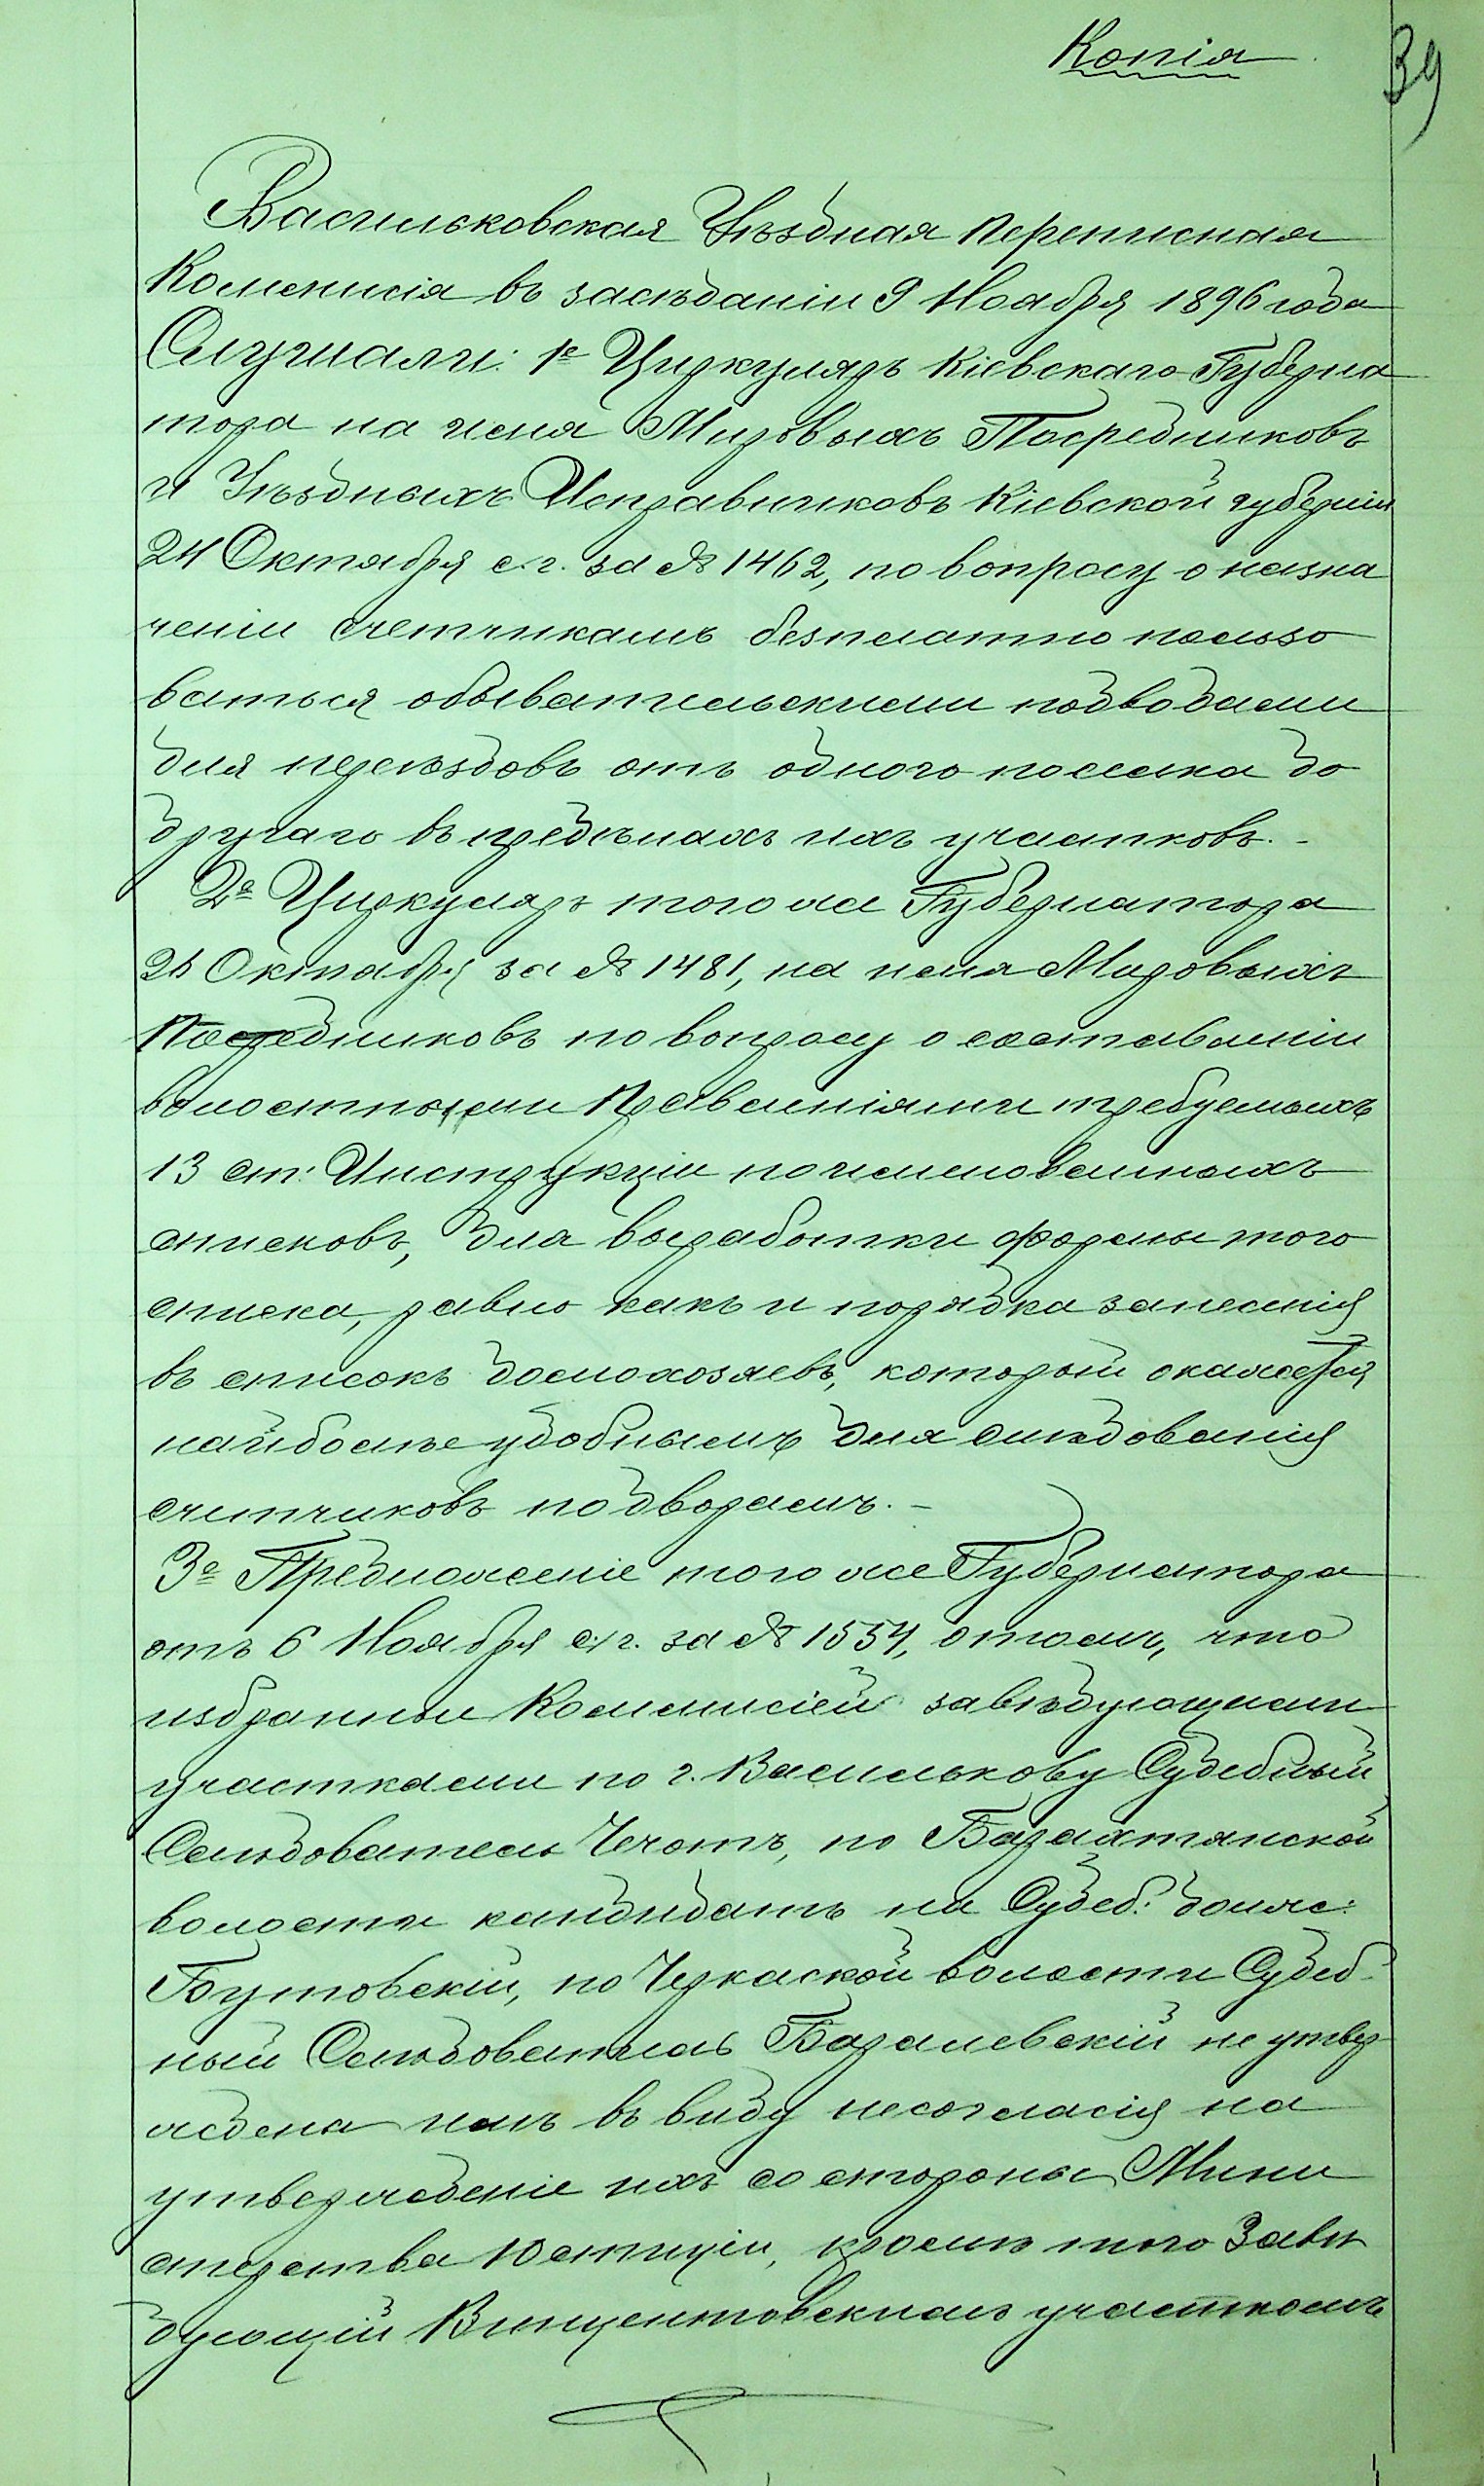 Копія
39
Васильковская Уѣздная Переписная
Коммисія въ засѣданіи 9 Ноября 1896 года
Слушали: 1е Циркуляръ Кіевскаго Губерна
тора на имя Мировыхъ Посредниковъ
и Уѣздныхъ Исправниковъ Кіевской губерніи
24 Октября с.г. за № 1462, по вопросу о назна
ченіи счетчикамъ безплатно пользо
ваться обывательскими подводами
для переѣздовъ отъ одного поселка до
другаго въ предѣлахъ ихъ участковъ. -
2е Циркуляръ того же Губернатора
Октября за № 1481, на имя Мировыхъ
Посредниковъ по вопросу о составленіи
волостными Правленіями требуемыхъ
13 ст: Инструкціи поименованныхъ
списковъ, для выработки формы того
списка, равно какъ и порядка занесенія
въ списокъ домохозяевъ, который окажется
найболѣе удобнымъ для слѣдованія
счетчиковъ по дворамъ. -
3е Предложеніе того же Губернатора
отъ 6 Ноября с/г. за № 1554, о томъ, что
избранные Коммисіей завѣдующими
участками по г. Василькову Судебный
Слѣдователь Чечотъ, по Барахтянской
волости кандидатъ на Судеб: долж:
Бутовскій, по Черкаской волости Судеб-
ный Слѣдователь Базалевскій не утвер
ждена имъ въ виду несогласія на
утвержденіе ихъ со стороны Мини
стерства Юстиціи, кромѣ того Завѣ
дующій Винцентовскимъ участкомъ